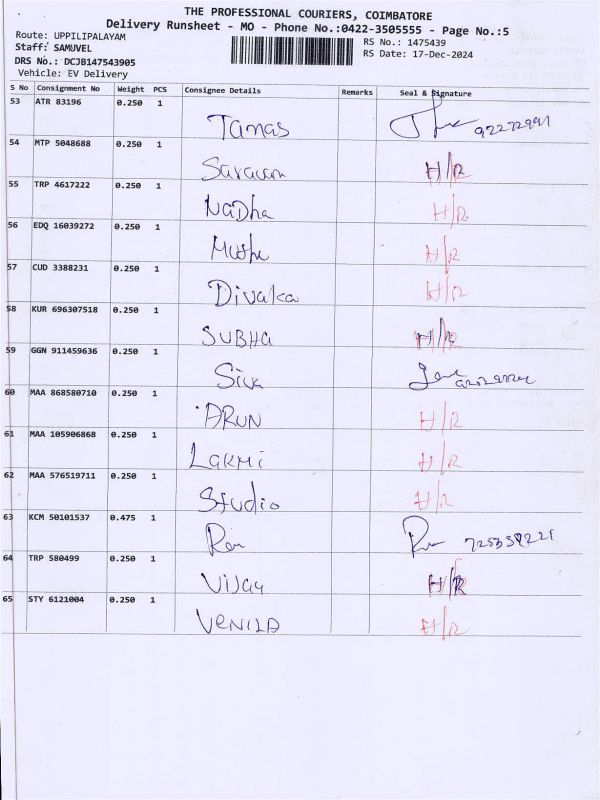 THE PROFESSIONAL COURIERS, COIMBATORE
Delivery Runsheet - MO - Phone No.:0422-3505555 - Page No.:5
Route: UPPILIPALAYAM RS No.: 1475439
Staff: SAMUVEL RS Date: 17-Dec-2024
DRS No.: DCJB147543905
Vehicle: EV Delivery
S No Consignment No Weight PCS Consignee Details Remarks Seal & Signature
53 ATR 83196 0.250 1 Tamas
54 MTP 5048688 0.250 1 Saravan H/R
55 TRP 4617222 0.250 1 Nadha H/R
56 EDQ 16039272 0.250 1 Muthu H/R
57 CUD 3388231 0.250 1 Divaka H/R
58 KUR 696307518 0.250 1 SUBHA H/R
59 GGN 911459636 0.250 1 Siva
60 MAA 868580710 0.250 1 ARUN H/R
61 MAA 105906868 0.250 1 LAKMi H/R
62 MAA 576519711 0.250 1 Studio H/R
63 KCM 50101537 0.475 1 Ram
64 TRP 580499 0.250 1 Vijay H/R
65 STY 6121004 0.250 1 VENILA H/R